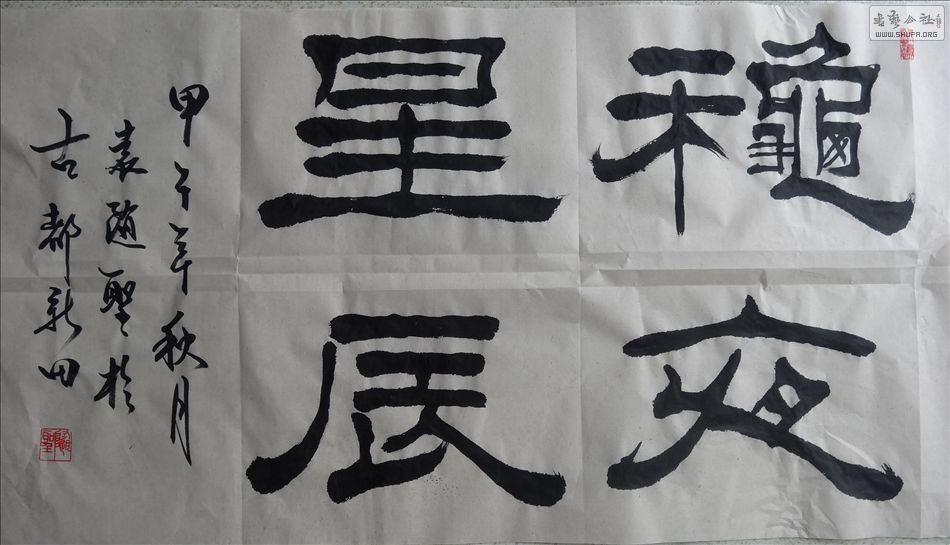 龝夜
星辰
甲午年秋月
袁随聖於
古都新田
書藝公社
WWW.SHUFA.ORG